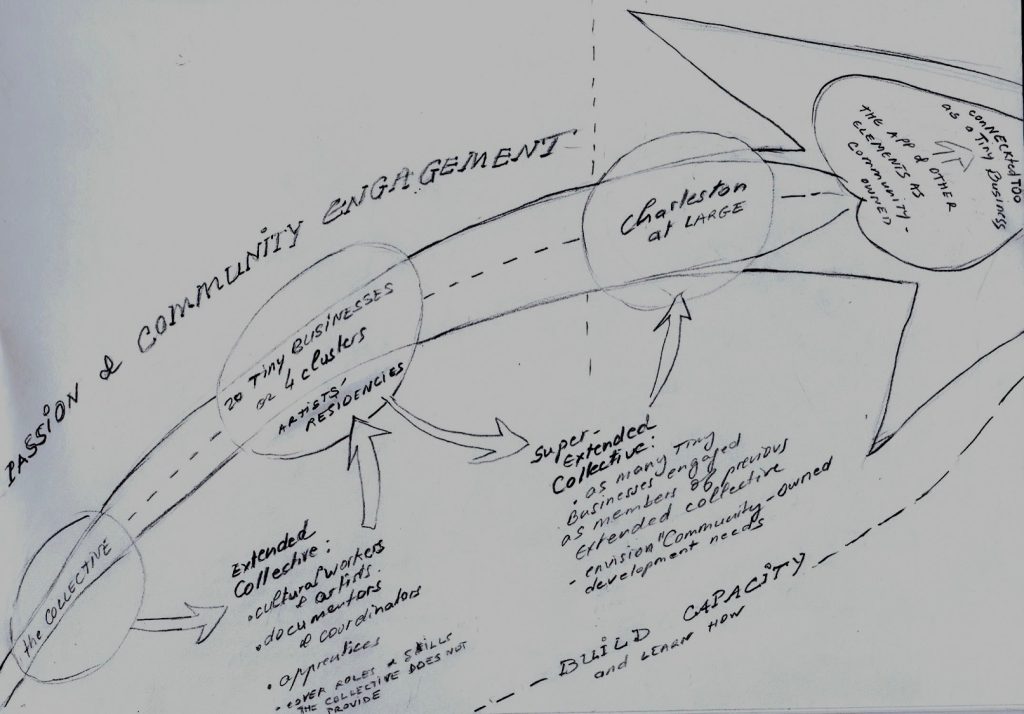 PASSION & COMMUNITY ENGAGEMENT
the COLLECTIVE
Extended
Collective:
• cultural workers
& artists.
• documentors
& coordinators
• apprentices
• COVER ROLES & SKILLS
THE COLLECTIVE DOES NOT
PROVIDE
20 Tiny BUSINESSES
or 4 clusters
ARTISTS'
RESIDENCIES
Super-
Extended
Collective:
• as many Tiny
Businesses engaged
as members of previous
Extended collective
- envision "Community-owned
development needs
Charleston
at LARGE
THE APP & OTHER
ELEMENTS AS
COMMUNITY-
OWNED
conNECkted TOO
as a Tiny Business
BUILD CAPACITY
and LEARN HOW